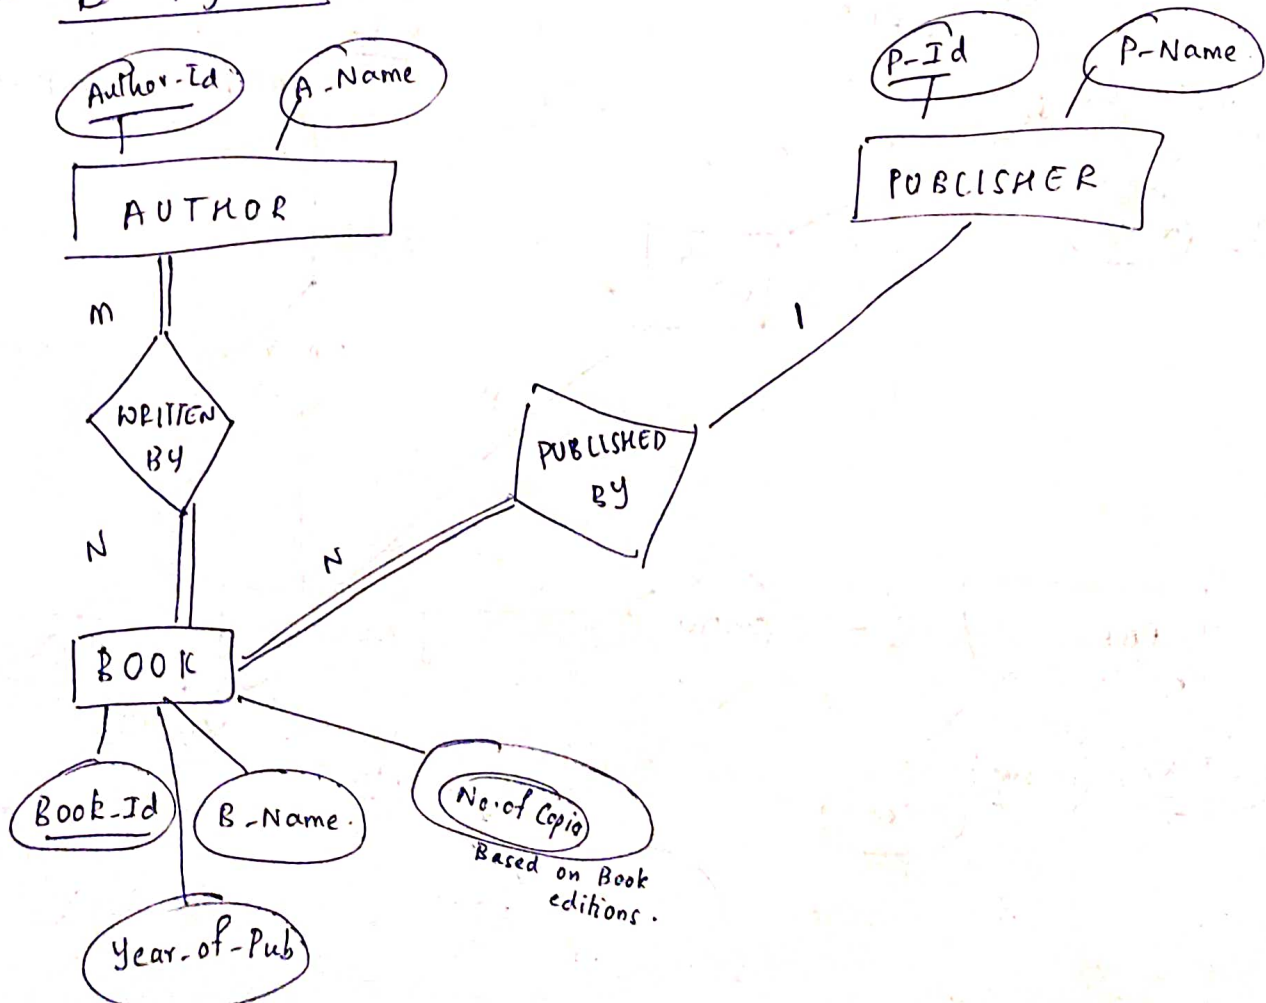 Author-Id
A-Name
P-Id
P-Name
AUTHOR
PUBLISHER
M
1
WRITTEN
BY
PUBLISHED
BY
N
N
BOOK
Book-Id
B-Name.
No. of Copie
Based on Book
editions.
Year-of-Pub